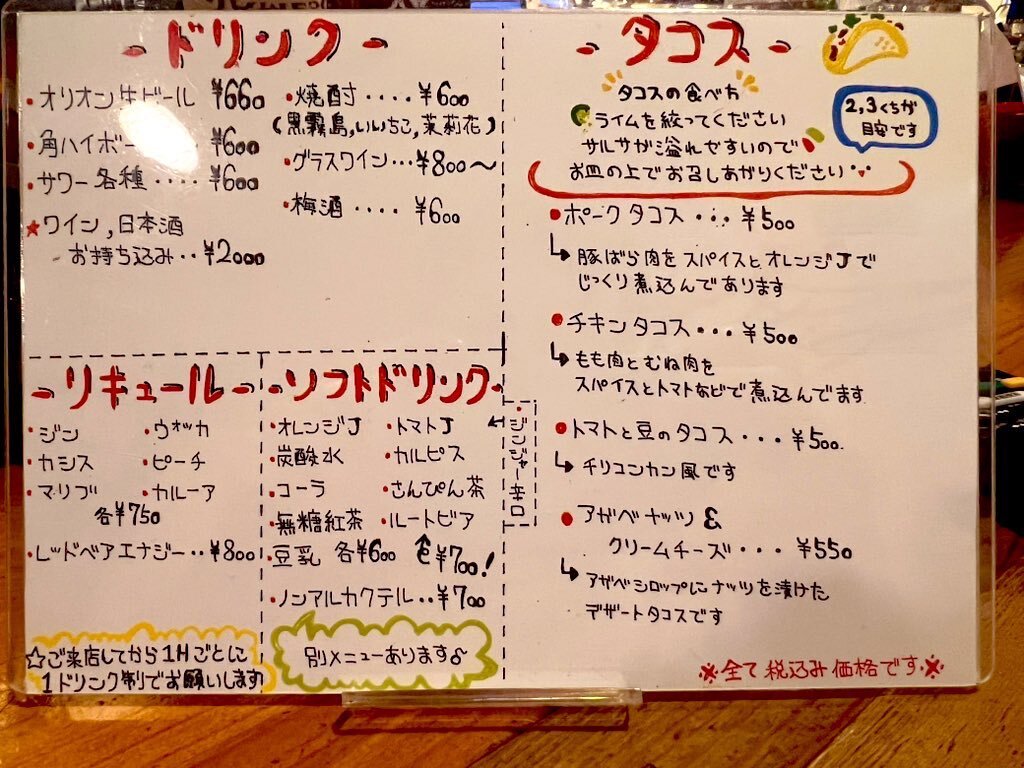 - ドリンク -
・オリオン生ビール ¥660
・角ハイボー
・・¥600
・サワー各種‥‥¥600
★ワイン,日本酒
お持ち込み‥¥2000
・焼酎‥‥¥600
(黒霧島,いいちこ,茉莉花)
・グラスワイン…¥800～
・梅酒‥‥¥600
- リキュール -
・ジン ・ウォッカ
・カシス ・ピーチ
・マリブ ・カルーア
各¥750
・レッドベアエナジー‥¥800
☆ご来店してから1Hごとに
1ドリンク制でお願いします
- ソフトドリンク -
・オレンジJ ・トマトJ
・炭酸水 ・カルピス
・コーラ ・さんぴん茶
・無糖紅茶 ・ルートビア
・豆乳 各¥600 ¥700!
・ノンアルカクテル‥¥700
・ジンジャー辛口
別メニューあります
- タコス -
タコスの食べ方
ライムを絞ってください
サルサが溢れやすいので
お皿の上でお召しあがりください
2,3くちが
目安です
・ポークタコス‥‥¥500
↳豚ばら肉をスパイスとオレンジJで
じっくり煮込んであります
・チキンタコス・・・¥500
↳もも肉とむね肉を
スパイスとトマトなどで煮込んでます
・トマトと豆のタコス・・・¥500.
↳チリコンカン風です
・アガベナッツ &
クリームチーズ・・・¥550
↳アガベシロップにナッツを漬けた
デザートタコスです
※全て税込み価格です※